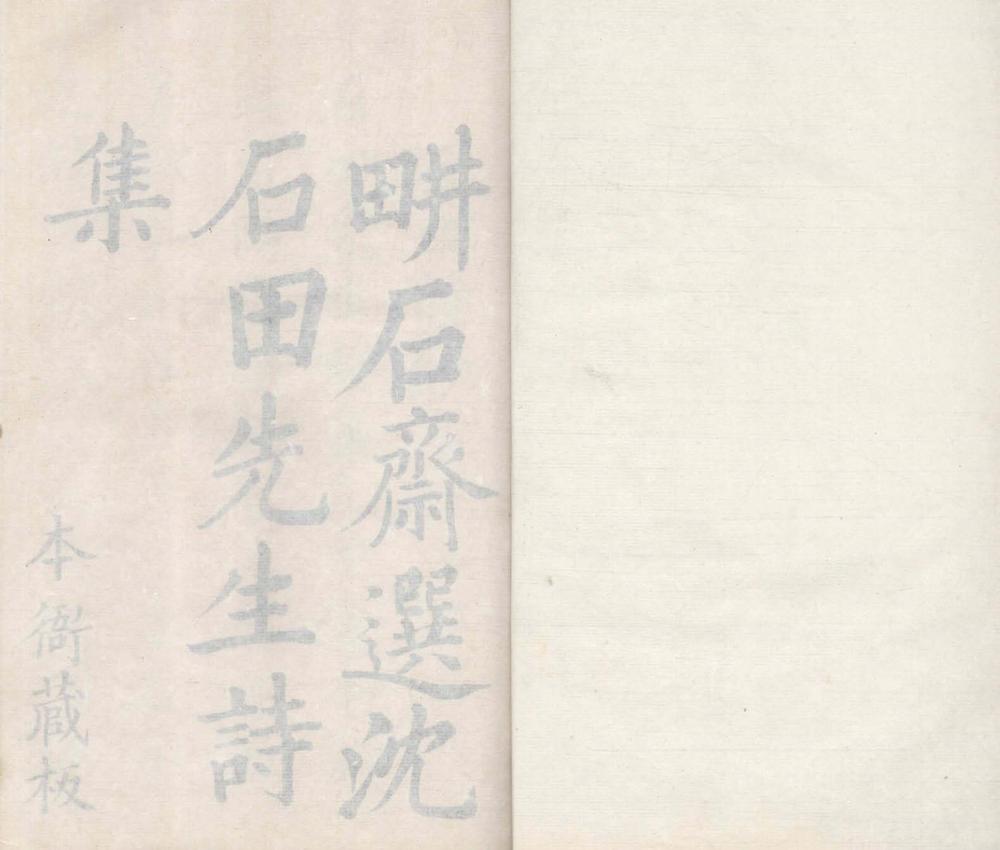 畊石齋選沈
石田先生詩
集
本衙蔵板